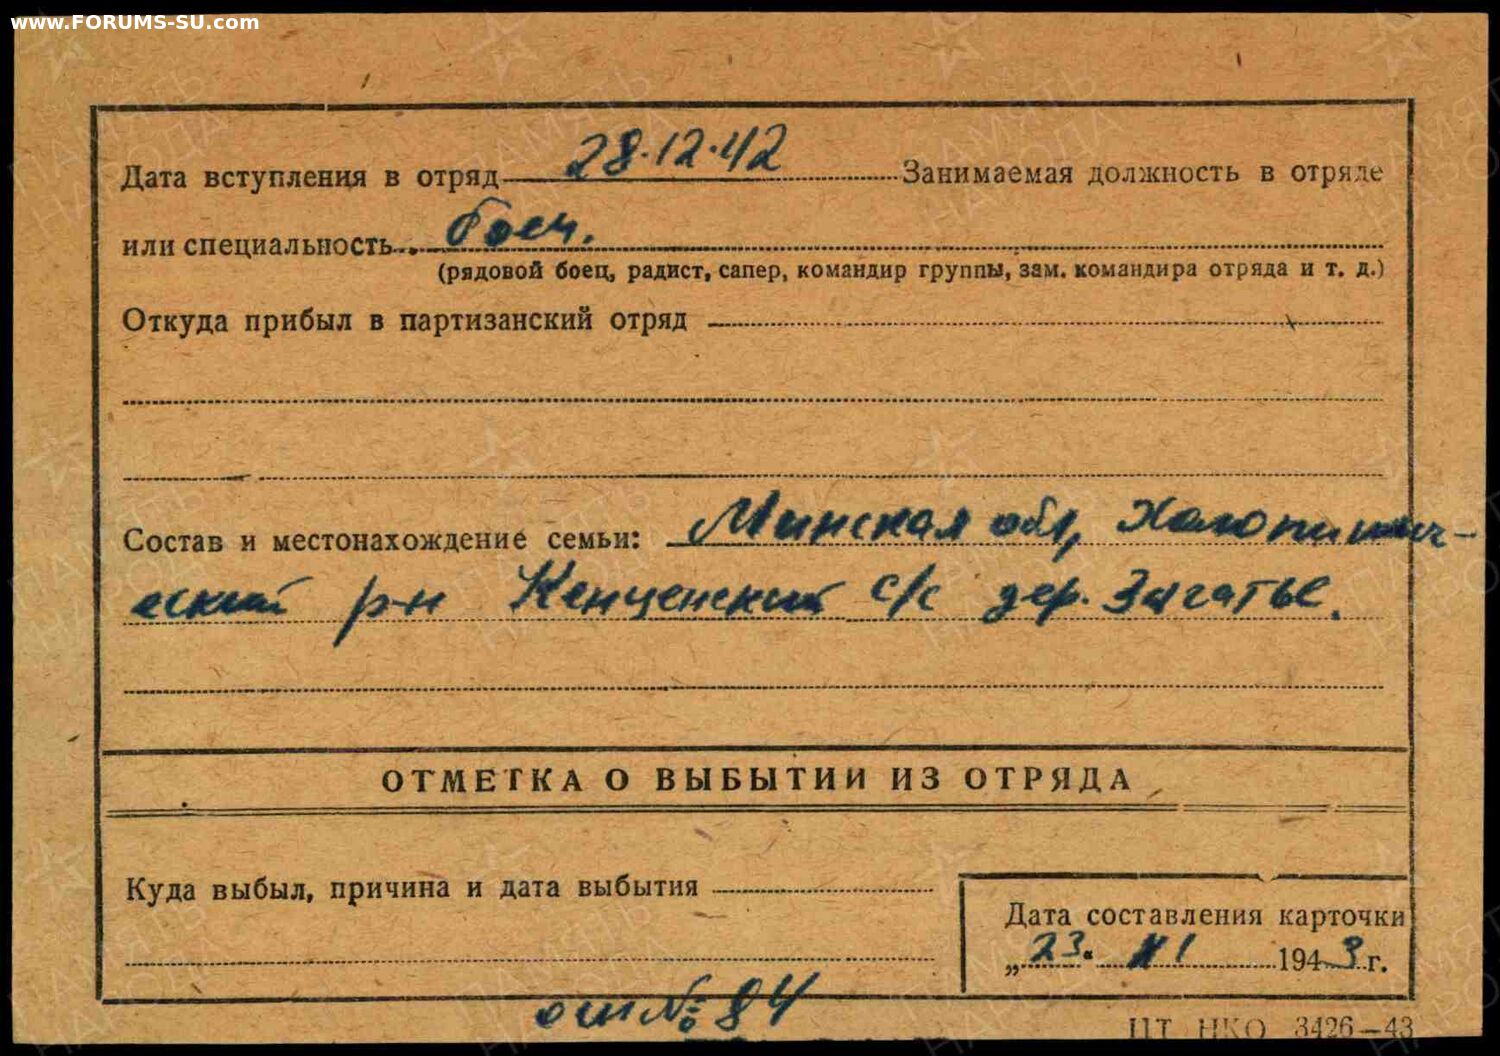 www.FORUMS-SU.com
Дата вступления в отряд 28.12.42 Занимаемая должность в отряде
или специальность боец.
(рядовой боец, радист, сапер, командир группы, зам. командира отряда и т. д.)
Откуда прибыл в партизанский отряд
Состав и местонахождение семьи: Минская обл, Холопинич-
еский р-н Кенценский с/с дер. Загатье.
ОТМЕТКА О ВЫБЫТИИ ИЗ ОТРЯДА
Куда выбыл, причина и дата выбытия
Дата составления карточки
„23“ XI 1943 г.
оп № 84
ЦТ НКО 3426—43
ПАМЯТЬ НАРОДА